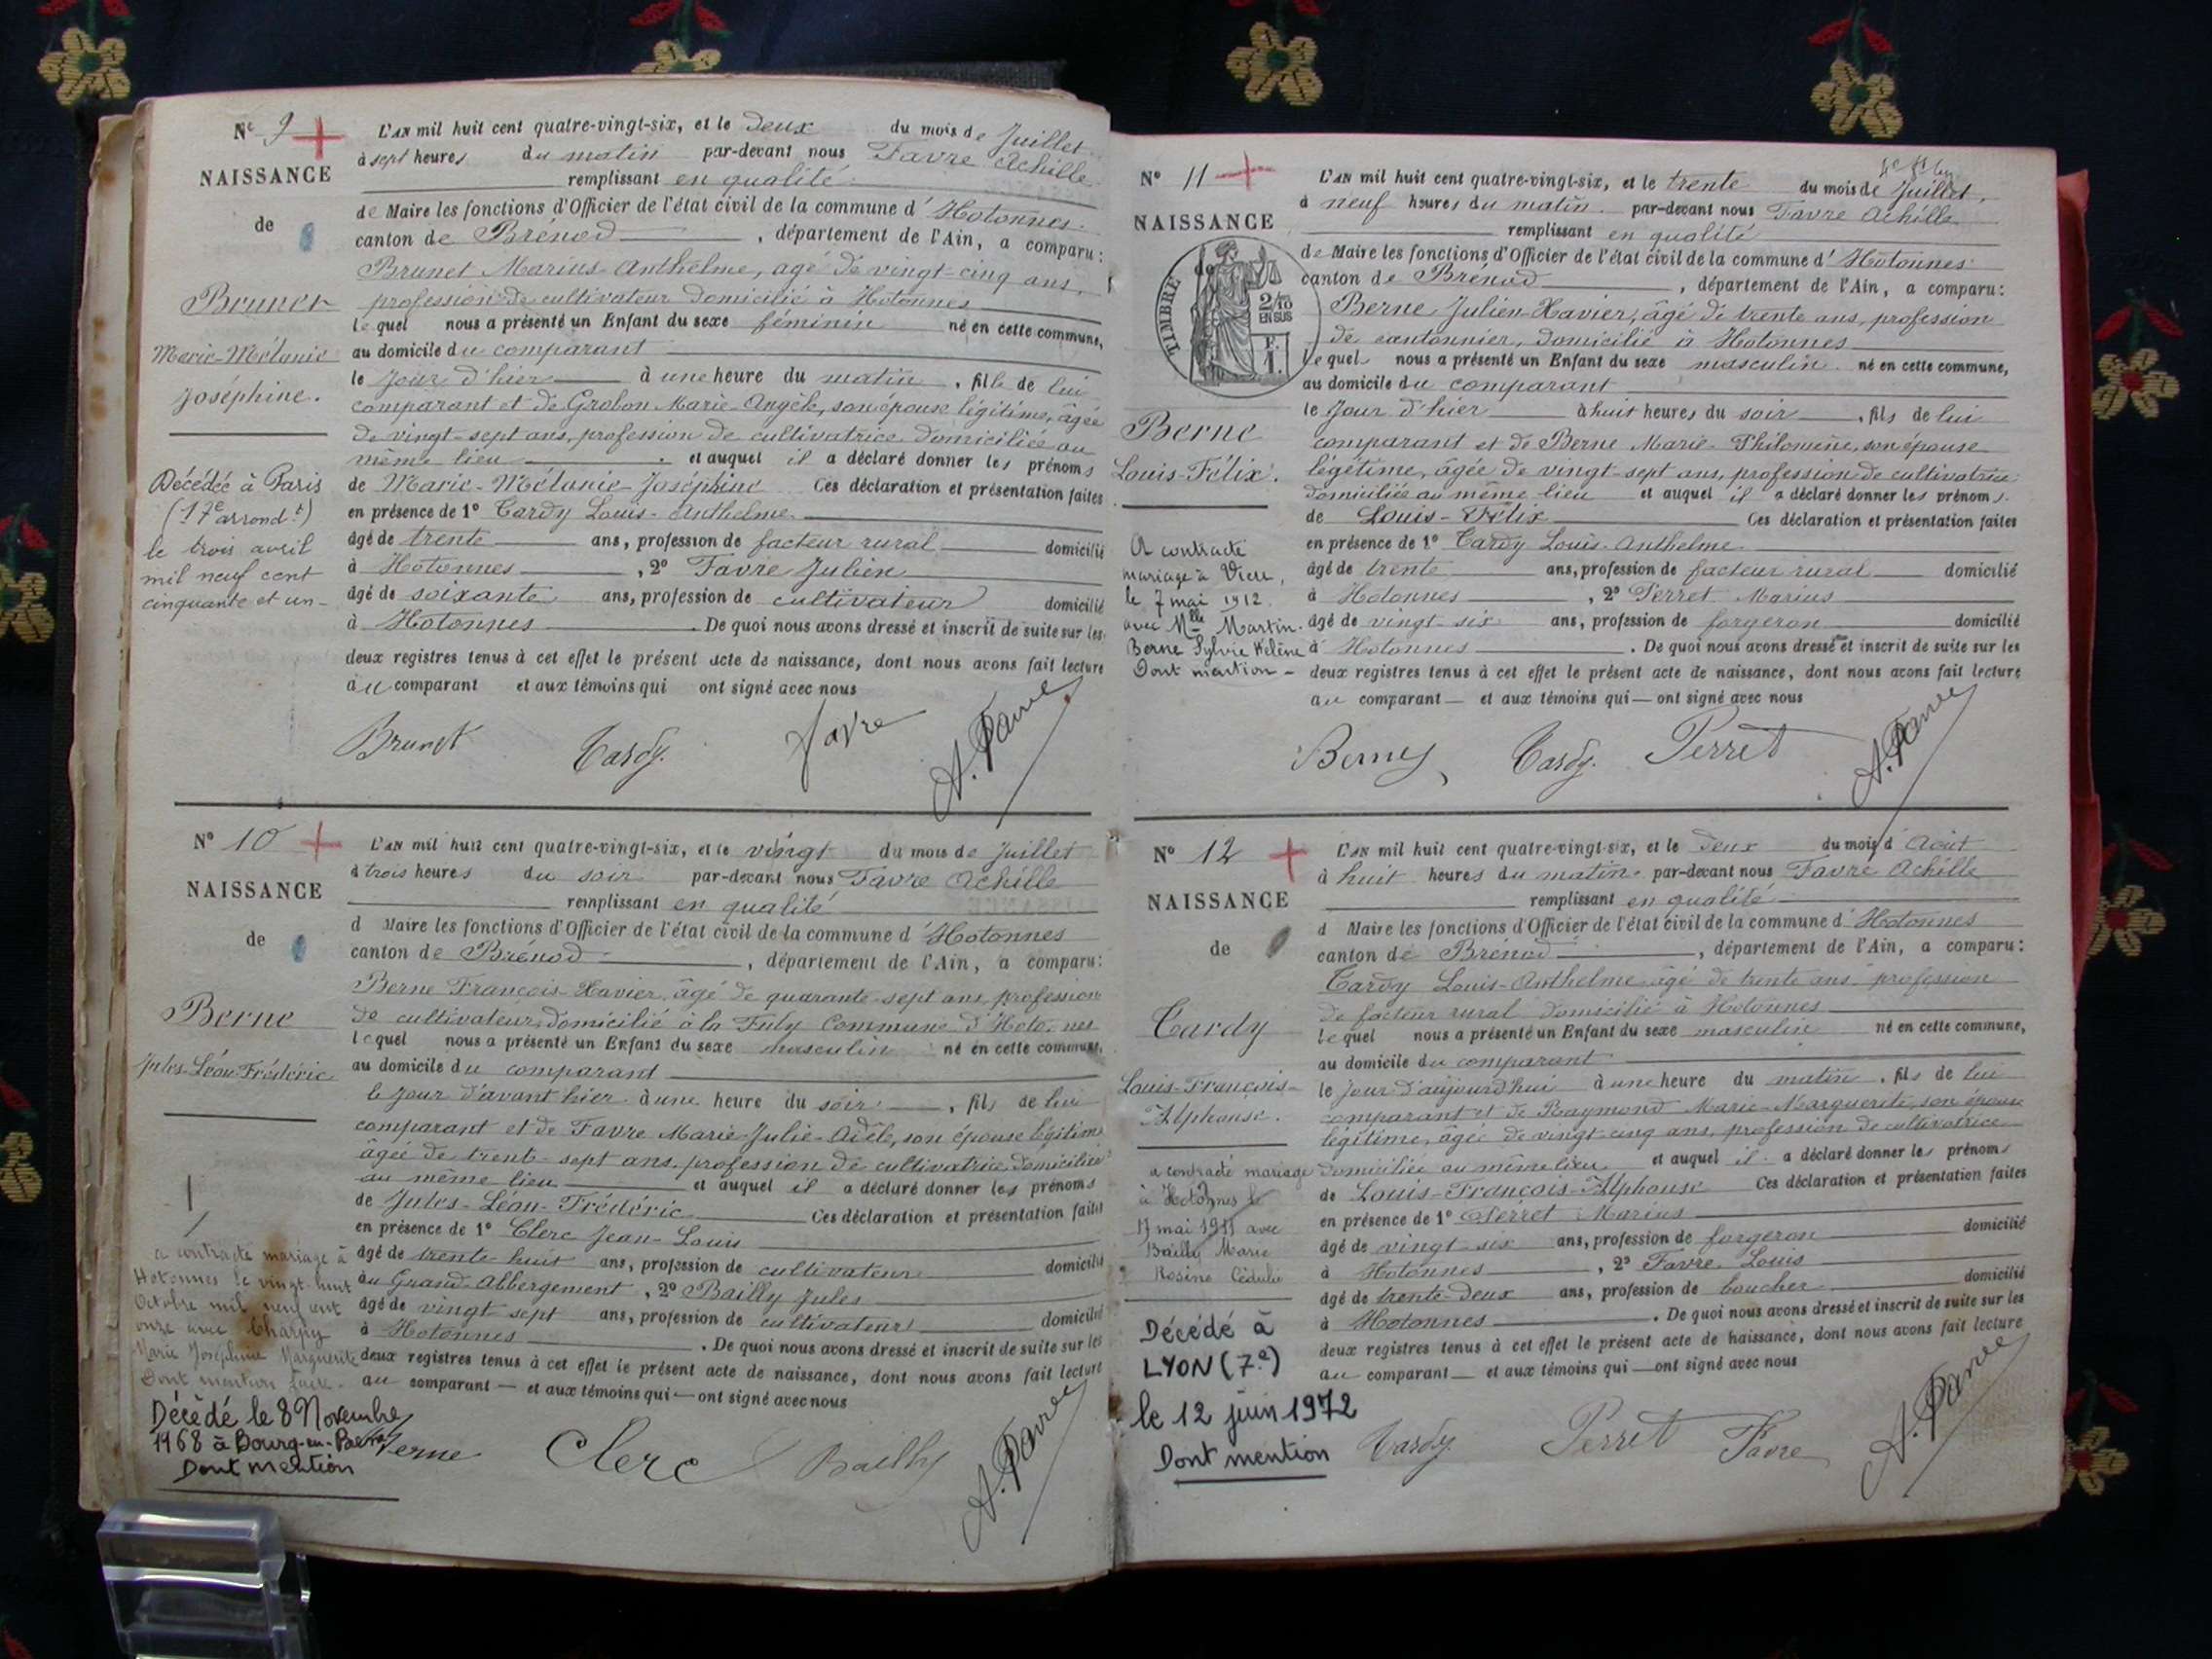 N° 9
NAISSANCE
de
Brunet
Marie-Mélanie
Joséphine.
Décédée à Paris
(17e arrondt)
le trois avril
mil neuf cent
cinquante et un -
L'AN mil huit cent quatre-vingt-six, et le deux du mois de Juillet
à sept heures du matin par-devant nous Favre Achille
remplissant en qualité
de Maire les fonctions d'Officier de l'état civil de la commune d'Hotonnes
canton de Brénod, département de l'Ain, a comparu:
Brunet Marius-Anthelme, agé de vingt-cinq ans,
profession de cultivateur domicilié à Hotonnes
lequel nous a présenté un Enfant du sexe féminin né en cette commune,
au domicile du comparant
le jour d'hier à une heure du matin, fille de lui
comparant et de Grobon Marie-Angèle, son épouse légitime, âgée
de vingt-sept ans, profession de cultivatrice domiciliée au
même lieu et auquel il a déclaré donner les prénoms
de Marie-Mélanie-Joséphine Ces déclaration et présentation faites
en présence de 1° Tardy Louis-Anthelme
âgé de trente ans, profession de facteur rural domicilié
à Hotonnes, 2° Favre Julien
âgé de soixante ans, profession de cultivateur domicilié
à Hotonnes. De quoi nous avons dressé et inscrit de suite sur les
deux registres tenus à cet effet le présent acte de naissance, dont nous avons fait lecture
au comparant et aux témoins qui ont signé avec nous
Brunet Tardy. Favre A. Favre
N° 10
NAISSANCE
de
Berne
Jules-Léon-Frédéric
a contracté mariage à
Hotonnes le vingt-huit
Octobre mil neuf cent
onze avec Charpy
Marie Joséphine Marguerite
Dont mention faite.
Décédé le 8 Novembre
1968 à Bourg-en-Bresse
Dont mention
L'AN mil huit cent quatre-vingt-six, et le vingt du mois de Juillet
à trois heures du soir par-devant nous Favre Achille
remplissant en qualité
d Maire les fonctions d'Officier de l'état civil de la commune d'Hotonnes
canton de Brénod, département de l'Ain, a comparu:
Berne François-Xavier, âgé de quarante-sept ans, profession
de cultivateur domicilié à la Commune d'Hotonnes
lequel nous a présenté un Enfant du sexe masculin né en cette commune,
au domicile du comparant
le jour d'avant hier à une heure du soir, fils de lui
comparant et de Favre Marie-Julie-Adèle, son épouse légitime
âgée de trente-sept ans, profession de cultivatrice domiciliée
au même lieu et auquel il a déclaré donner les prénoms
de Jules-Léon-Frédéric Ces déclaration et présentation faites
en présence de 1° Clerc Jean-Louis
âgé de trente-huit ans, profession de cultivateur domicilié
au Grand-Abbergement, 2° Bailly Jules
âgé de vingt sept ans, profession de cultivateur domicilié
à Hotonnes. De quoi nous avons dressé et inscrit de suite sur les
deux registres tenus à cet effet le présent acte de naissance, dont nous avons fait lecture
au comparant — et aux témoins qui — ont signé avec nous
Berne Clerc Bailly A. Favre
N° 11
NAISSANCE
de
TIMBRE
2/10
EN SUS
F.
1.
Berne
Louis-Félix.
A contracté
mariage à Vieu,
le 7 mai 1912
avec Mlle Martin-
Berne Sylvie Hélène
Dont mention -
L'AN mil huit cent quatre-vingt-six, et le trente du mois de Juillet,
à neuf heures du matin. par-devant nous Favre Achille
remplissant en qualité
de Maire les fonctions d'Officier de l'état civil de la commune d'Hotonnes
canton de Brénod, département de l'Ain, a comparu:
Berne Julien-Xavier, âgé de trente ans, profession
de cantonnier, domicilié à Hotonnes
lequel nous a présenté un Enfant du sexe masculin né en cette commune,
au domicile du comparant
le jour d'hier à huit heures du soir, fils de lui
comparant et de Berne Marie-Philomène, son épouse
légitime, âgée de vingt-sept ans, profession de cultivatrice
domiciliée au même lieu et auquel il a déclaré donner les prénoms
de Louis-Félix Ces déclaration et présentation faites
en présence de 1° Tardy Louis-Anthelme
âgé de trente ans, profession de facteur rural domicilié
à Hotonnes, 2° Perret Marius
âgé de vingt six ans, profession de forgeron domicilié
à Hotonnes. De quoi nous avons dressé et inscrit de suite sur les
deux registres tenus à cet effet le présent acte de naissance, dont nous avons fait lecture
au comparant — et aux témoins qui — ont signé avec nous
Berne Tardy. Perret A. Favre
N° 12
NAISSANCE
de
Tardy
Louis-François-
Alphonse.
a contracté mariage
à Hotonnes le
17 mai 1911 avec
Bailly Marie
Rosine
Décédé à
LYON (7e)
le 12 juin 1972
Dont mention
L'AN mil huit cent quatre-vingt-six, et le deux du mois d'Août
à huit heures du matin par-devant nous Favre Achille
remplissant en qualité
d Maire les fonctions d'Officier de l'état civil de la commune d'Hotonnes
canton de Brénod, département de l'Ain, a comparu:
Tardy Louis-Anthelme, âgé de trente ans, profession
de facteur rural domicilié à Hotonnes
lequel nous a présenté un Enfant du sexe masculin né en cette commune,
au domicile du comparant
le jour d'aujourd'hui à une heure du matin, fils de lui
comparant et de Raymond Marie-Marguerite, son épouse
légitime, âgée de vingt-cinq ans, profession de cultivatrice
domiciliée au même lieu et auquel il a déclaré donner les prénoms
de Louis-François-Alphonse Ces déclaration et présentation faites
en présence de 1° Perret Marius
âgé de vingt-six ans, profession de forgeron domicilié
à Hotonnes, 2° Favre Louis
âgé de trente-deux ans, profession de boucher domicilié
à Hotonnes. De quoi nous avons dressé et inscrit de suite sur les
deux registres tenus à cet effet le présent acte de naissance, dont nous avons fait lecture
au comparant — et aux témoins qui — ont signé avec nous
Tardy. Perret Favre A. Favre